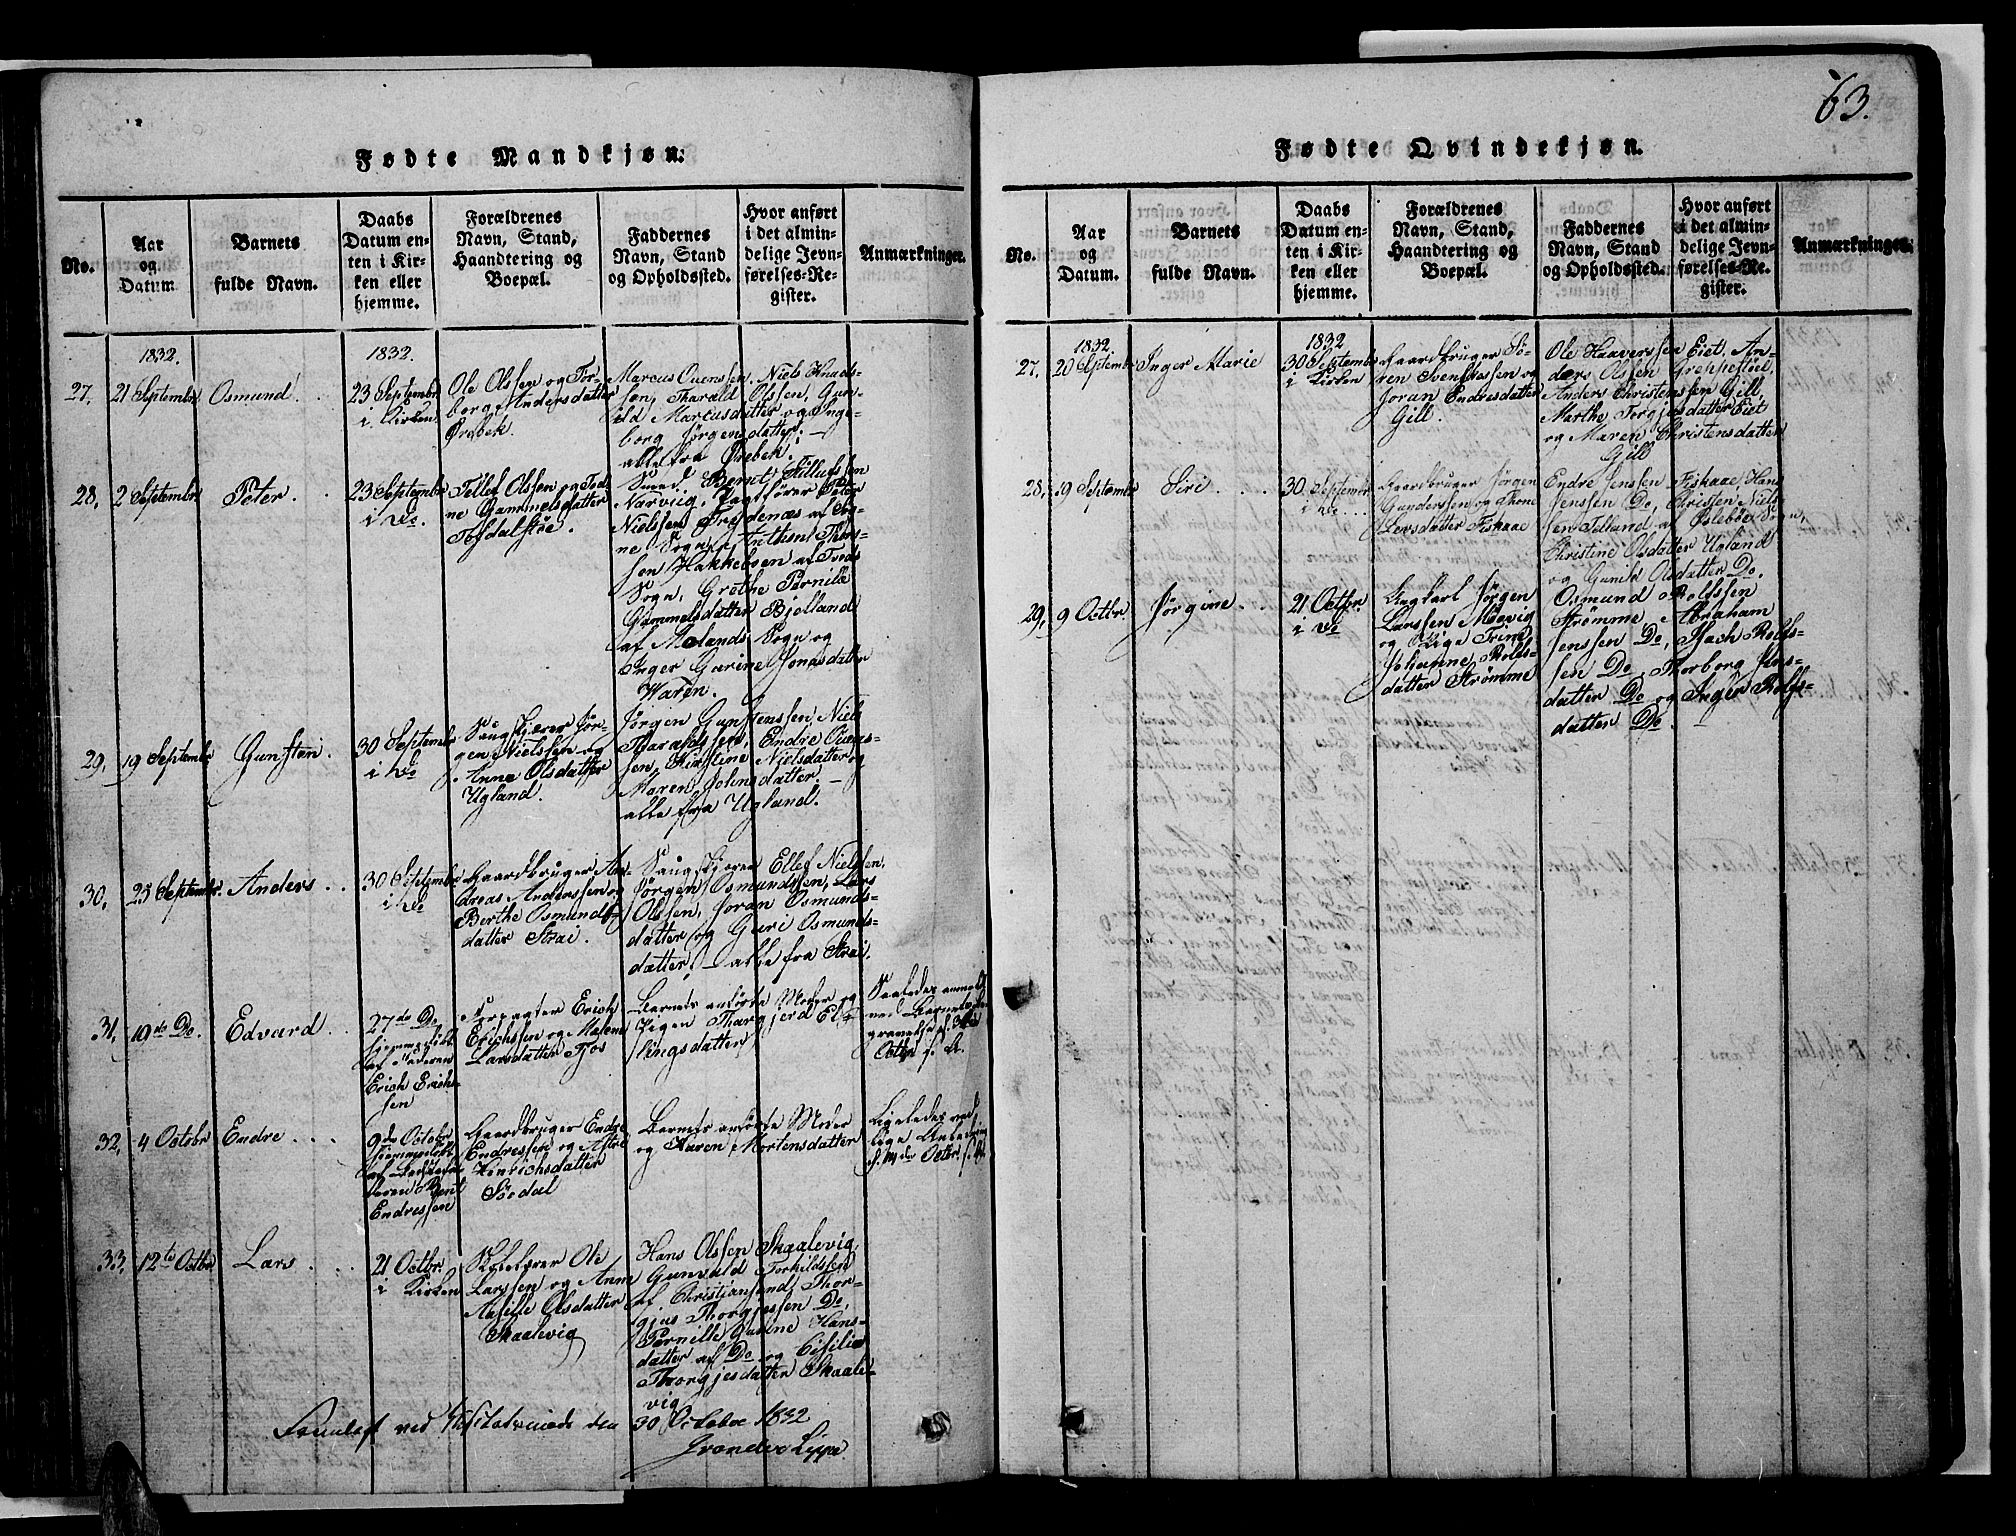 63.
Fødte Mandkjøn.
No.
Aar
og
Datum
Barnets
fulde Navn.
Daabs
Datum en-
ten i Kir-
ken eller
hjemme.
Forældrenes
Navn, Stand,
Haandtering og
Boepæl.
Faddernes
Navn, Stand
og Opholdssted.
Hvor anført
i det almin-
delige Jevn-
førelses-Re-
gister.
Anmærkninger.
1832.
1832.
27,
21 Septembr
Osmund.
23 Septembr
i Kirken
Ole Olssen og Tor-
borg Andersdatter
Ørebek.
Marcus Ouenssen, Niels Knuds-
sen, Tharald Olssen, Gun-
ild Marcusdatter og Inge-
borg Jørgensdatter, –
alle fra Ørebek.
28,
2 Septembr
Peter.
23 Septembr
i Do.
Tellef Olssen og
Gammelsdatter
Tofdalsøe.
Smed Bernt Tellefssen
Narviig, Peter
Nielssen af Tog-
ne Sogn, Anthon Thors-
sen Hakkeboen af Tveds
Sogn, Grethe Pernille
Gammelsdatter Bjolland
af Molands Sogn og
Inger Garine Jonasdatter
Waren.
29,
19 Septembr
Gunsten.
30 Septembr
i Do
Saugskjærer Jør-
gen Nielssen og
Anne Olsdatter
Ugland.
Jørgen Gunstenssen, Niels
Tharaldssen, Endre Ouens-
sen, Kirstine Nielsdatter og
Maren Johnsdatter –
alle fra Ugland.
30,
25 Septembr.
Anders.
30 Septembr
i Do
Gaardbruger An-
dreas Anderssen og
Berthe Osmunds-
datter Strai.
Saugskjærer Ellef Nielssen,
Jørgen Osmundssen, Lars
Olssen, Joran Osmunds-
datter og Guri Osmunds-
datter, – alle fra Strai.
31,
19de Do.
Edvard.
27de Do
hjemmedøbt
af Faderen
Erich Erichs-
sen
Forpagter Erich
Erichssen og Malene
Larsdatter Fjos
Barnets anførte Moder og
Pigen Thargjerd El-
lingsdatter
Saaledes anmeldt
ved Barnets Be-
gravelse
Octbr
32,
4 Octobr
Endre.
9de Octobr
hjemmedøbt
af
Bent
Endressen
Gaardbruger Endre
Endressen og Astre
Hinrichsdatter
Sødal
Barnets anførte Moder
og Karen Mortensdatter
Ligeledes ved
lige Anledning
Octbr.
33,
12te Octbr
Lars.
21 Octbr.
i Kirken
Ole
Larssen og Anne
Aasille Olsdatter
Skaalevig
Hans Olssen Skaalevig,
Gunvald Torkildssen
af Christjansand, Thor-
gjus Thorgjussen Do,
Pernille Gurine Hans-
datter af Do og Cisilie
Thorgjesdatter Skaale-
vig
ved den 30 October 1832
Fødte Qvindekjøn.
No.
Aar
og
Datum.
Barnets
fulde Navn.
Daabs
Datum en-
ten i Kir-
ken eller
hjemme.
Forældrenes
Navn, Stand,
Haandtering og
Boepæl.
Faddernes
Navn, Stand
og Opholdssted.
Hvor anført
i det almin-
delige Jevn-
førelses-Re-
gister.
Anmærkninger.
1832.
1832
27,
20 Septembr
Inger Marie
30 Septembr
i Kirken
Gaardbruger Sø-
ren Svendssen og
Joran Endresdatter
Gill.
Ole Haaverssen Eiet, An-
ders Olssen Greppestøel,
Anders Christenssen Gill,
Marthe Torgjesdatter Eiet
og Maren Christensdatter
Gill
28,
19 Septembr
Siri
30 Septembr
i Do
Gaardbruger Jørgen
Gunderssen og Thone
Larsdatter Fiskaae
Endre Jenssen Fiskaae, Hans
Jenssen Do, Christen Niels-
sen Telland af Øslebøe Sogn,
Christine Olsdatter Ugland
og Gunild Olsdatter Do.
29,
9 Octbr.
Jørgine
21 Octbr.
i Do
Ungkarl Jørgen
Larssen Møevig
og Pige Trine
Johanne Rolfs-
datter Strømme
Osmund Rolfssen
Strømme, Abraham
Jenssen Do, Isach Rolfs-
sen Do, Thorborg Jens-
datter Do og Inger Rolfs-
datter Do.